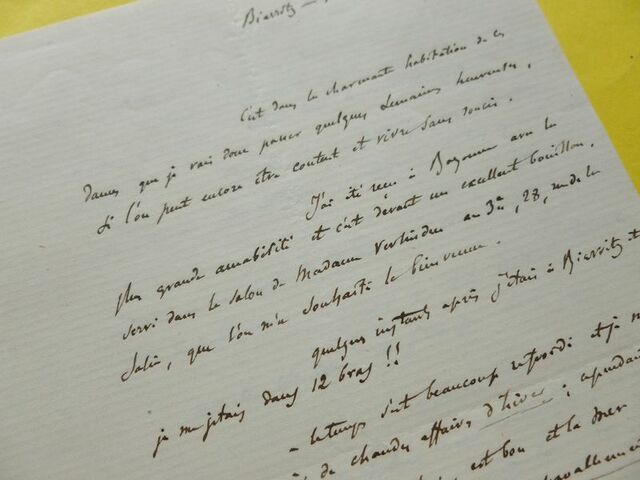 Biarritz —
C'est dans la charmante habitation de ces
dames que je vais donc passer quelques semaines heureuses,
si l'on peut encore être content et vivre sans soucis.
J'ai été reçu à Bayonne avec la
plus grande amabilité et c'est devant un excellent bouillon,
servi dans le salon de Madame au 3me, 28, rue de la
Salie, que l'on m'a souhaité la bienvenue.
quelques instants après j'étais à Biarritz et
je me jetais dans 12 bras !!
le temps s'est beaucoup refroidi et je
de chaudes affaires d'hiver ; cependant
est bon et la mer